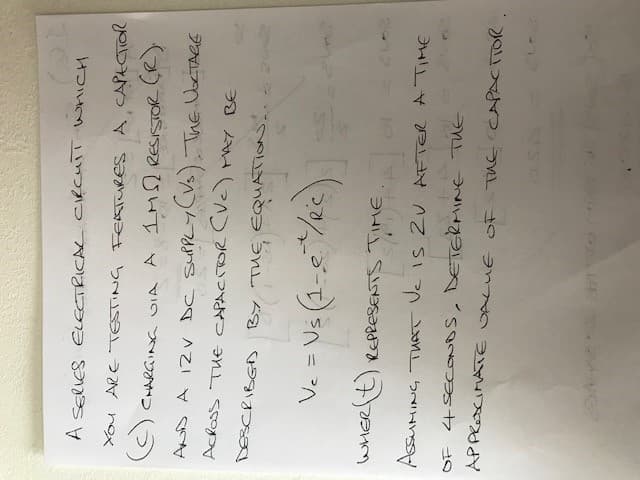 A SERIES ELECTRICAL CIRCUIT WHICH
YOU ARE TESTING FEATURES A CAPACITOR
(C) CHARGING VIA A 1MΩ RESISTOR (R)
AND A 12V DC SUPPLY (Vs). THE VOLTAGE
ACROSS THE CAPACITOR (Vc) MAY BE
DESCRIBED BY THE EQUATION...
Vc = Vs(1-e^-t/RC)
WHER (t) REPRESENTS TIME.
ASSUMING THAT Vc IS 2V AFTER A TIME
OF 4 SECONDS, DETERMINE THE
APPROXIMATE VALUE OF THE CAPACITOR.